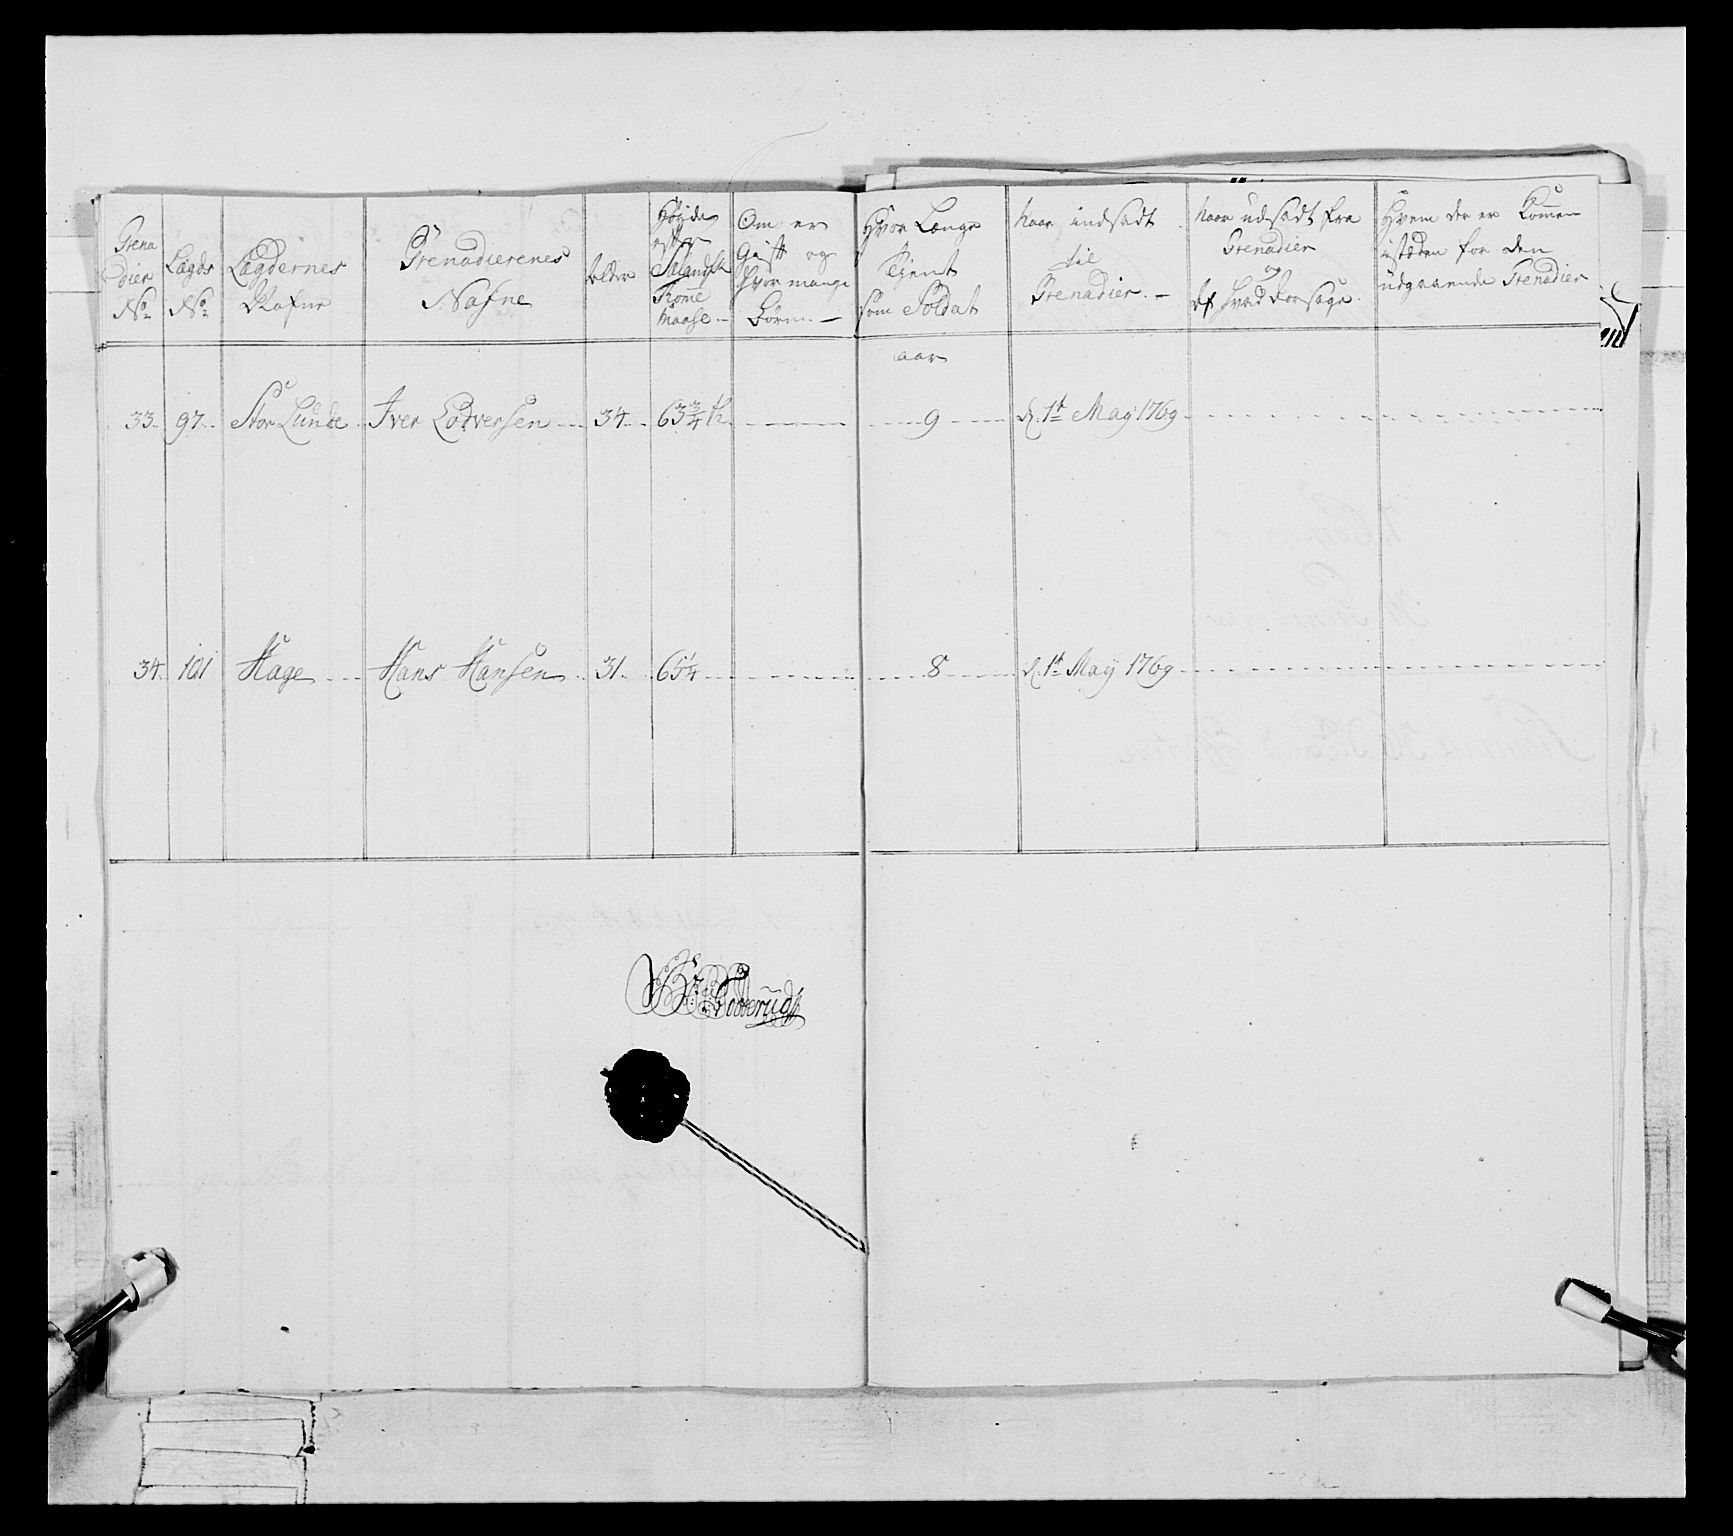 Grena
dier
No
Lægds
No
Lægdernes
Nafne
Grenadierenes
Nafne
Alder
Høyde
efter
Sælandsk
Tomme
Maase
Om er
Gift og
Hvor mange
Børn
Hvor Længe
Tjent
som Soldat
Naar indsadt
til
Grenadier
Naar udsadt fra
Grenadier
og
Af Hvad Aarsage
Hvem der er Komen
istæden for den
udgaaende Grenadier
aar
33 97 Stor Lunde Iver Lodversen 34 63 3/4 9 d. 1te May 1769
34 101 Hage Hans Hansen 31 65 1/4 8 d. 1te May 1769